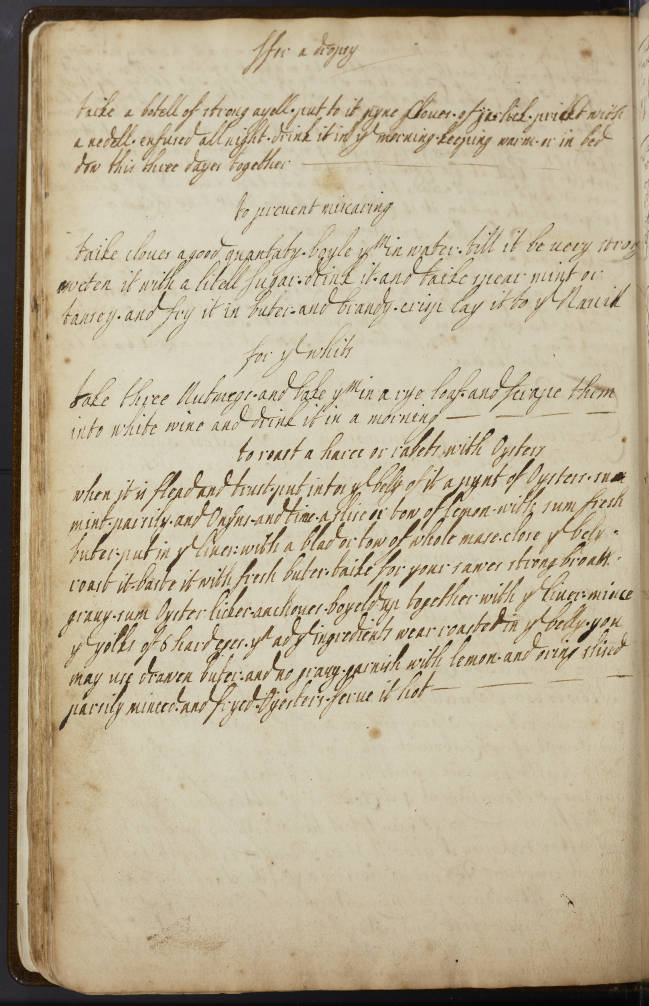 ffor a dropsy
take a botell of strong ayell put to it nyne Cloues of garlick prickt with
a nedell enfused all night drink it in yͤ morning keeping warm or in bed
dow this three dayes together
to prevent miscaring
take cloues a good quantaty boyle yᵐ in water till it be uery strong
sweten it with a litell sugar drink it and take spear mint or
tansey and fry it in buter and brandy crisp lay it to yͤ Nauill
for yͤ whits
take three Nutmegs and bake yᵐ in a rye loaf and scrape them
into white wine and drink it in a morning
to roast a haree or rabets with Oysters
when it is flead and trust put into yͤ bely of it a pynt of Oysters sum
mint parsily and Onyns and time a slice or tow of lemon with sum fresh
buter put in yͤ liuer with a blad or tow of whole mase close yͤ bely
roast it baste it with fresh buter take for your sawes strong broath
grauy sum Oyster licker anchoues boyeld up together with yͤ liuer mince
yͤ yolks of 8 hard eges yⁿ ad yͤ ingredients wear roasted in yͤ belly you
may use drawen buter and no grauy garnish with lemon and oring slised
parsily minced and fryed Oyesters serue it hot